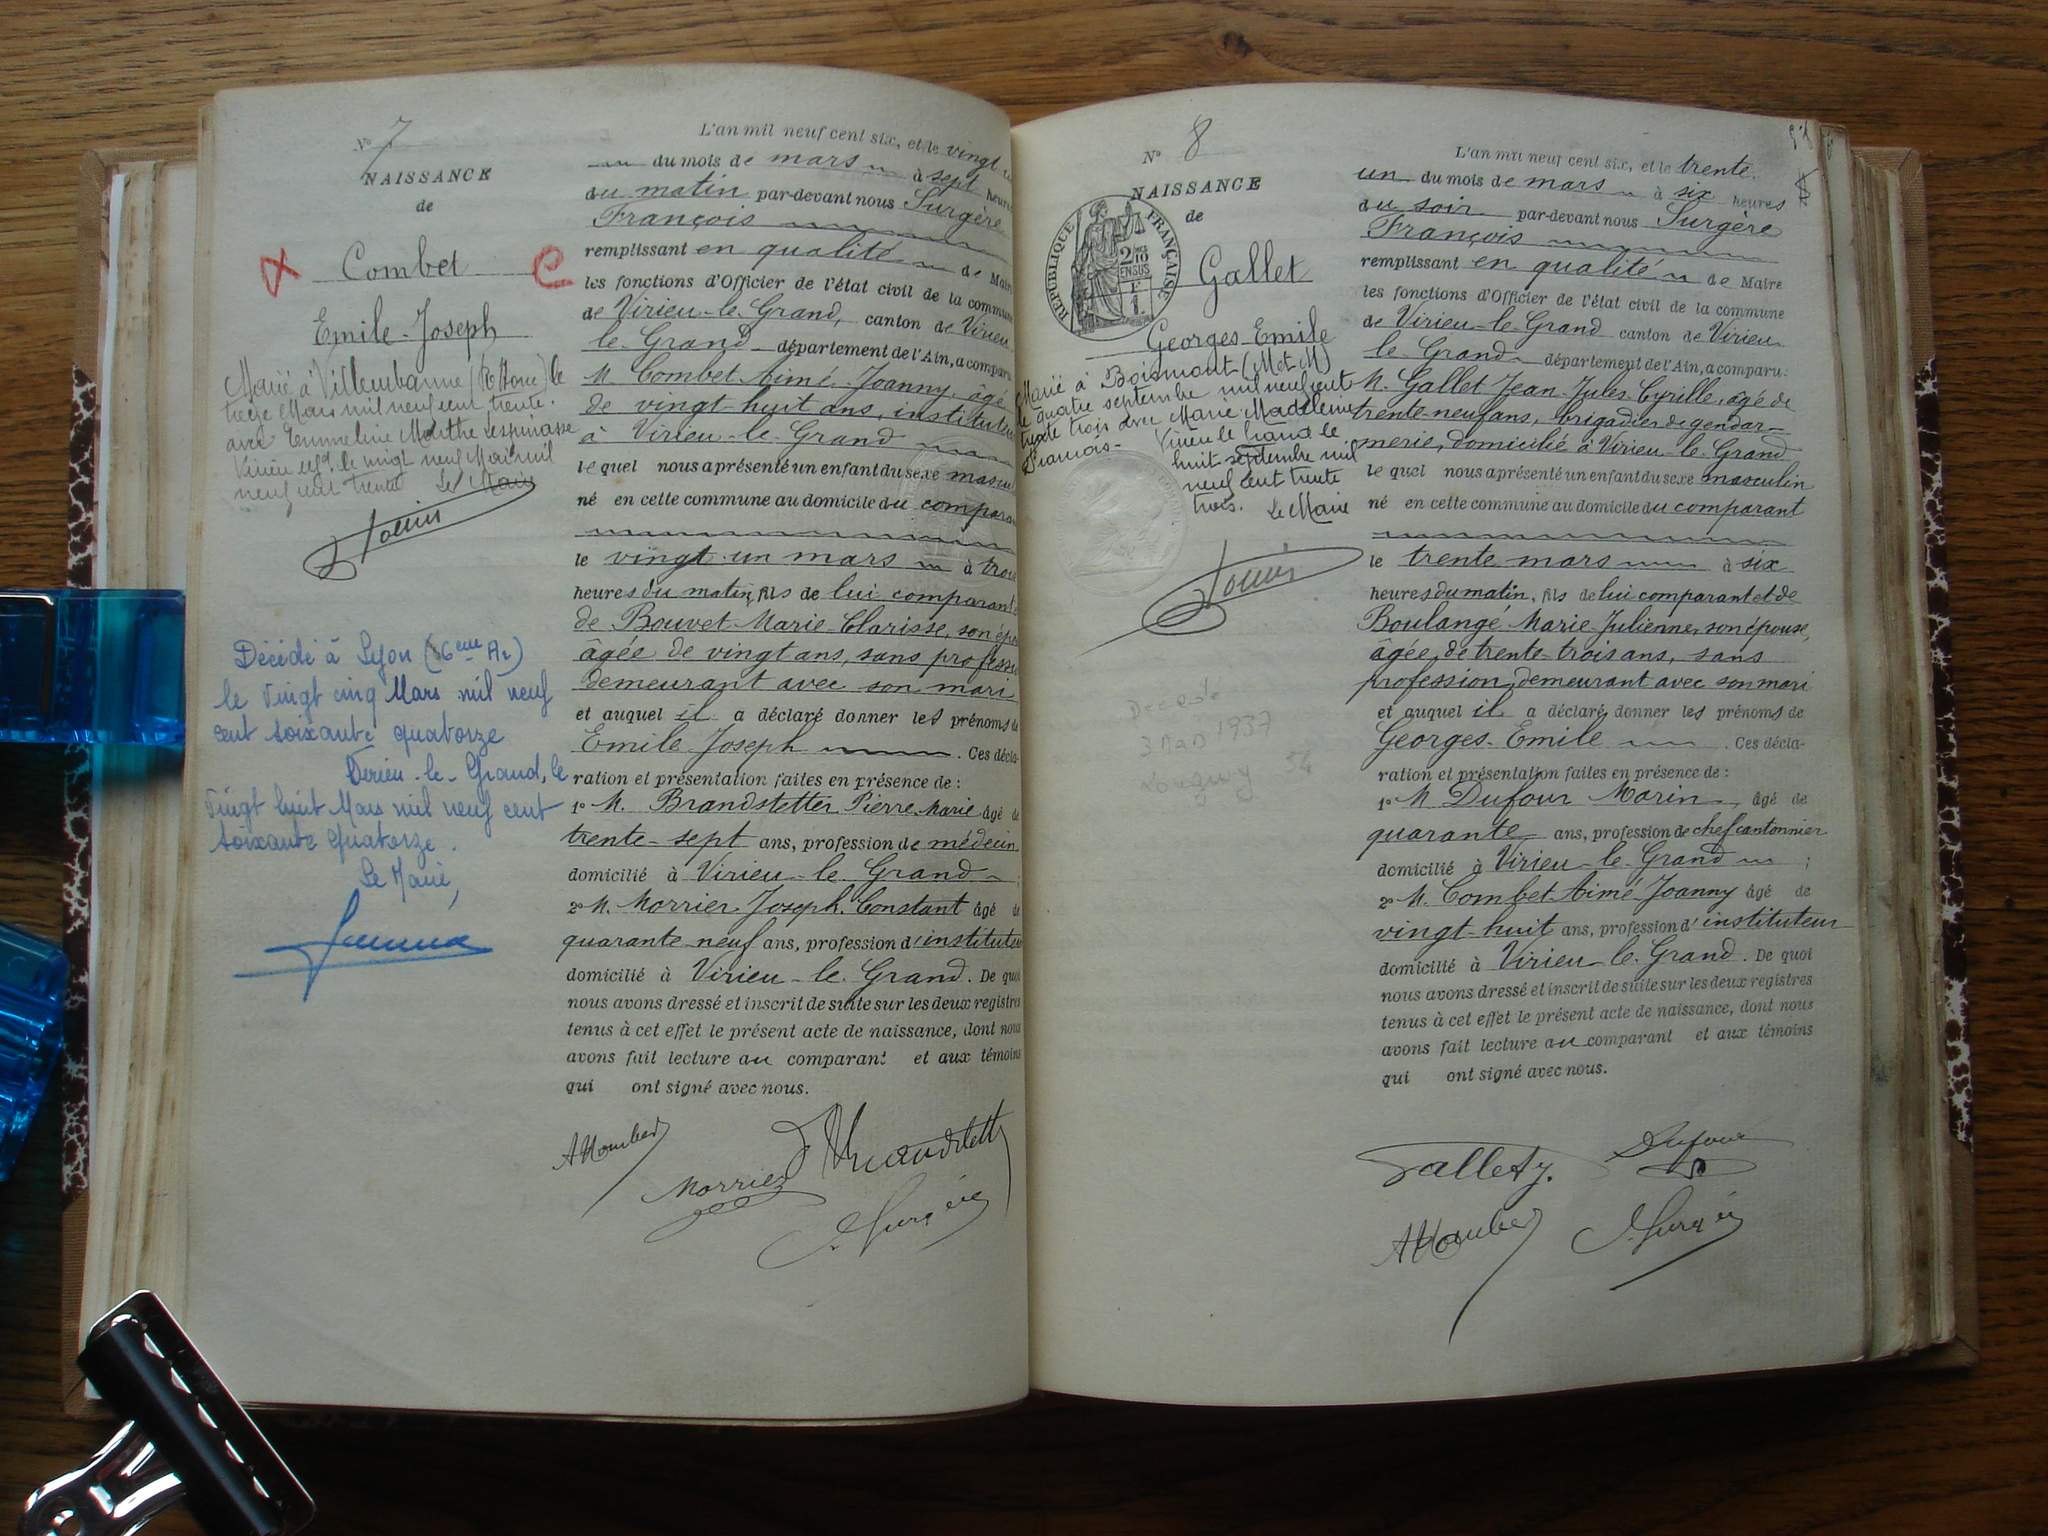 Nº 7
NAISSANCE
de
Combet
Emile-Joseph
Marié à Villeurbanne (Rhône) le
treize Mars mil neuf cent trente.
avec Emmeline Marthe Lespinasse
Virieu le Gd le vingt neuf Mars mil
neuf cent trente Le Maire
Décédé à Lyon (6eme Ar)
le Vingt cinq Mars mil neuf
cent soixante quatorze
Virieu-le-Grand, le
Vingt huit Mars mil neuf cent
soixante quatorze.
Le Maire,
L'an mil neuf cent six, et le vingt un
du mois de mars à sept heures
du matin par-devant nous Surgère
François
remplissant en qualité de Maire
les fonctions d'Officier de l'état civil de la commune
de Virieu-le-Grand, canton de Virieu-
le-Grand département de l'Ain, a comparu
M. Combet Aimé-Joanny, âgé
de vingt-huit ans, instituteur
à Virieu-le-Grand
lequel nous a présenté un enfant du sexe mascul
né en cette commune au domicile du comparant
le vingt-un mars à trois
heures du matin, fils de lui comparant &
de Bouvet Marie-Clarisse, son épou
âgée de vingt ans, sans professi
demeurant avec son mari
et auquel il a déclaré donner les prénoms de
Emile Joseph . Ces décla-
ration et présentation faites en présence de :
1º M. Brandstetter Pierre-Marie âgé de
trente-sept ans, profession de médecin
domicilié à Virieu-le-Grand ;
2º M. Morrier Joseph Constant âgé de
quarante-neuf ans, profession d'instituteur
domicilié à Virieu-le-Grand. De quoi
nous avons dressé et inscrit de suite sur les deux registres
tenus à cet effet le présent acte de naissance, dont nous
avons fait lecture au comparant et aux témoins
qui ont signé avec nous.
ACombet
Brandstett
Morrier
Surgère
Nº 8
NAISSANCE
de
RÉPUBLIQUE FRANÇAISE
2/10 EN SUS
Gallet
Georges-Emile
Marié à Boismont (M et M)
le quatre septembre mil neuf cent
trente trois avec Marie Madeleine
François-
Virieu le Grand le
huit septembre mil
neuf cent trente
trois. Le Maire
Décédé
3 Mars 1937
Longwy 54
L'an mil neuf cent six, et le trente-
un du mois de mars à six heures
du soir par-devant nous Surgère
François
remplissant en qualité de Maire
les fonctions d'Officier de l'état civil de la commune
de Virieu-le-Grand canton de Virieu-
le-Grand département de l'Ain, a comparu :
M. Gallet Jean-Jules-Cyrille, âgé de
trente-neuf ans, brigadier de gendar-
merie, domicilié à Virieu-le-Grand
lequel nous a présenté un enfant du sexe masculin
né en cette commune au domicile du comparant
le trente mars à six
heures du matin, fils de lui comparant et de
Boulangé Marie-Julienne, son épouse,
âgée de trente-trois ans, sans
profession, demeurant avec son mari
et auquel il a déclaré donner les prénoms de
Georges-Emile . Ces décla-
ration et présentation faites en présence de :
1º M Dufour Marin, âgé de
quarante ans, profession de chef cantonnier
domicilié à Virieu-le-Grand ;
2º M. Combet Aimé-Joanny âgé de
vingt-huit ans, profession d'instituteur
domicilié à Virieu-le-Grand. De quoi
nous avons dressé et inscrit de suite sur les deux registres
tenus à cet effet le présent acte de naissance, dont nous
avons fait lecture au comparant et aux témoins
qui ont signé avec nous.
Gallet J.
Dufour
ACombet
Surgère